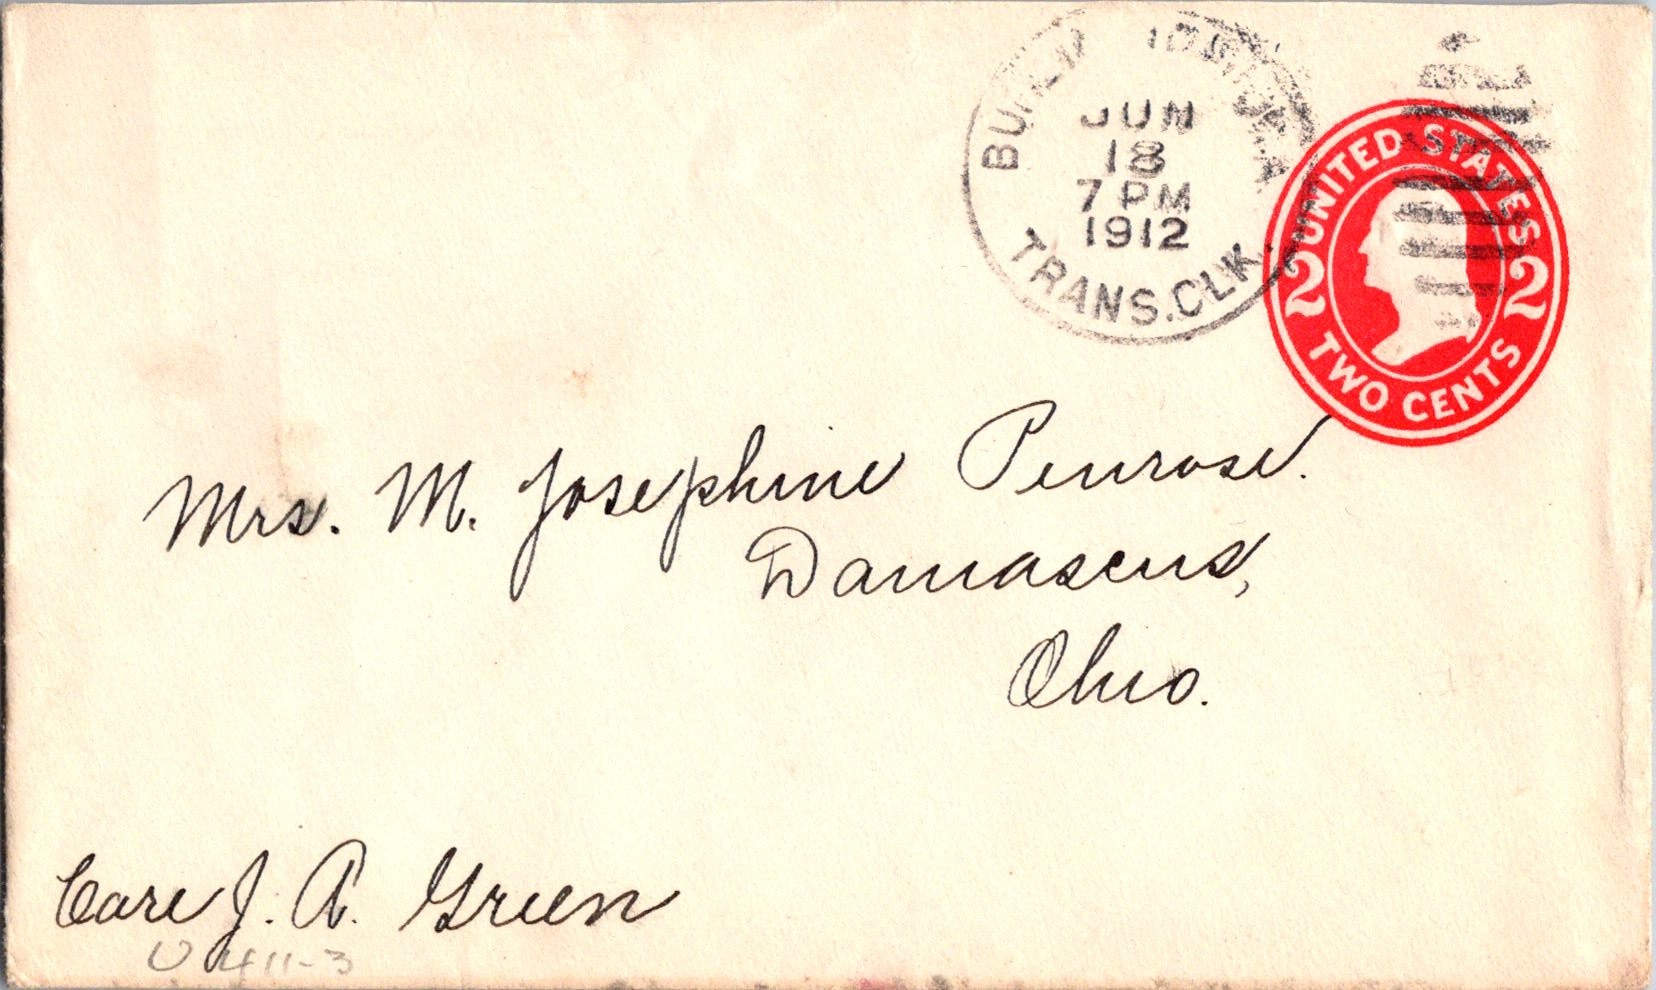 JUN
18
7 PM
1912
TRANS. CLK.
UNITED STATES
2 2
TWO CENTS
Mrs. M. Josephine Penrose.
Damascus,
Ohio.
Care J. A. Green
U411-3